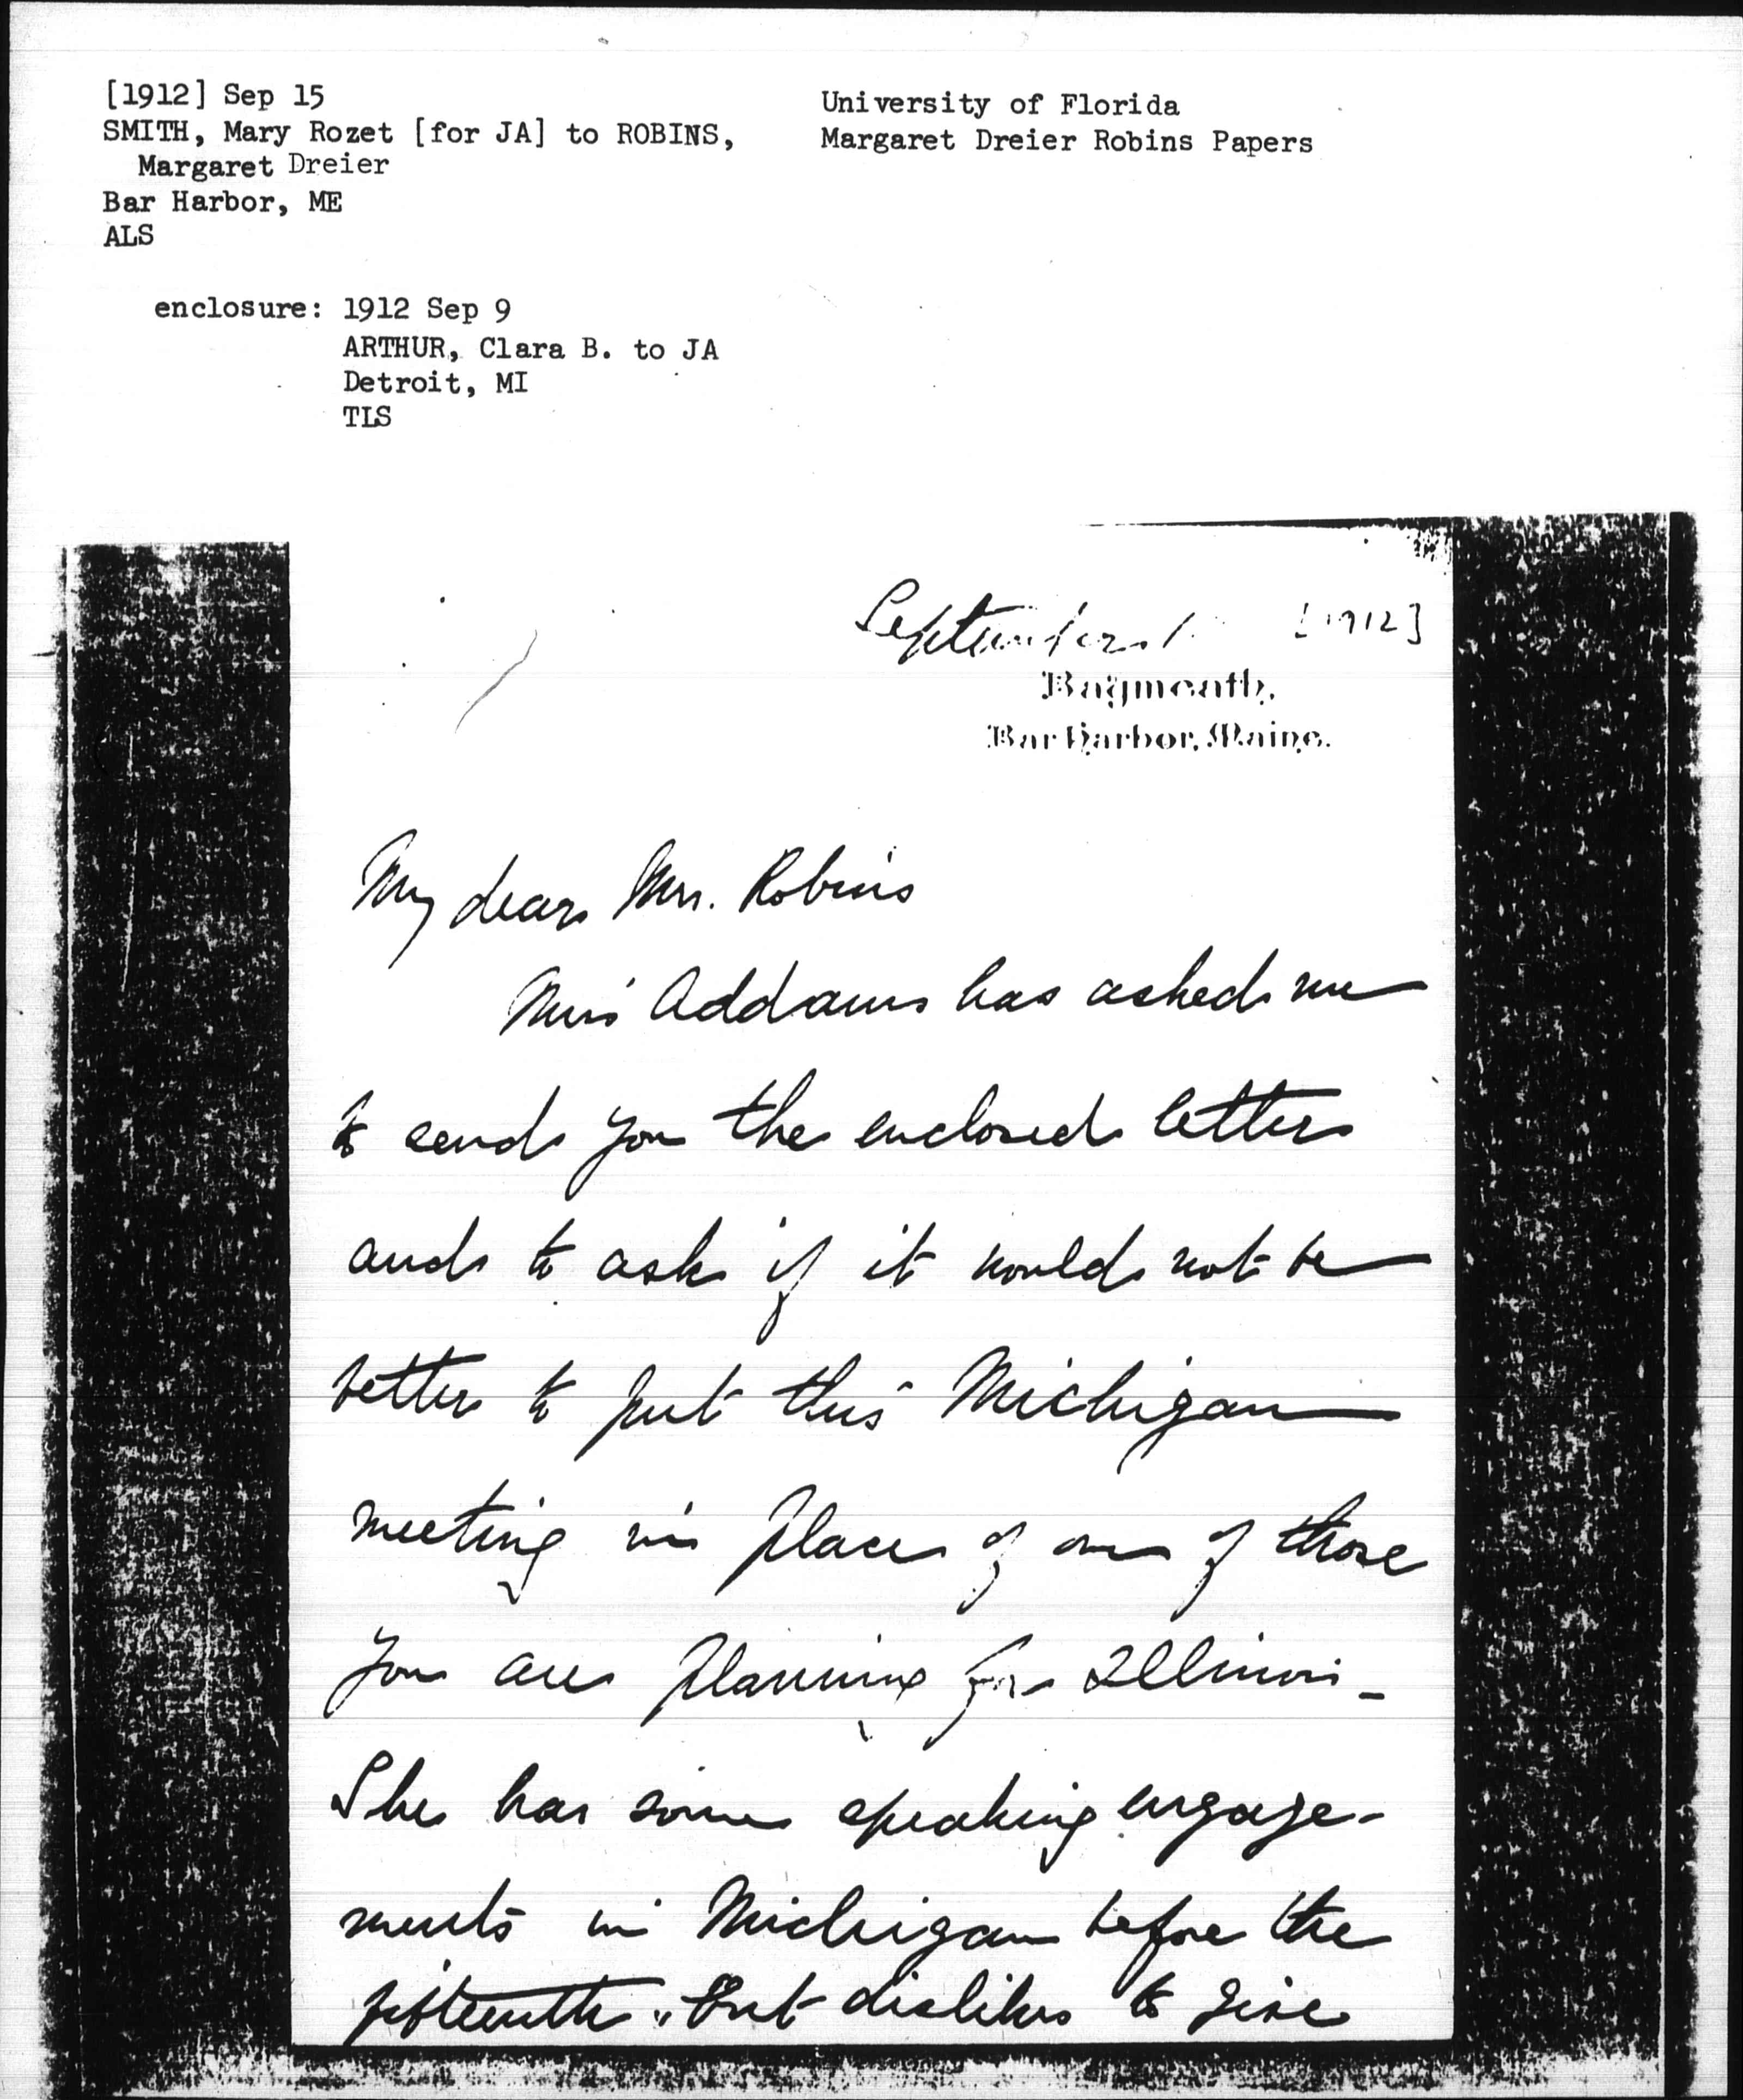 [1912] Sep 15
SMITH, Mary Rozet [for JA] to ROBINS,
Margaret Dreier
Bar Harbor, ME
ALS
University of Florida
Margaret Dreier Robins Papers
enclosure: 1912 Sep 9
ARTHUR, Clara B. to JA
Detroit, MI
TLS
September 1 [1912]
Baymeath,
Bar Harbor, Maine.
My dear Mrs. Robins
Miss Addams has asked me
to send you the enclosed letter
and to ask if it would not be
better to put this Michigan
meeting in place of one of those
you are planning for Illinois _
She has some speaking engage-
ments in Michigan before the
fifteenth, but dislikes to give